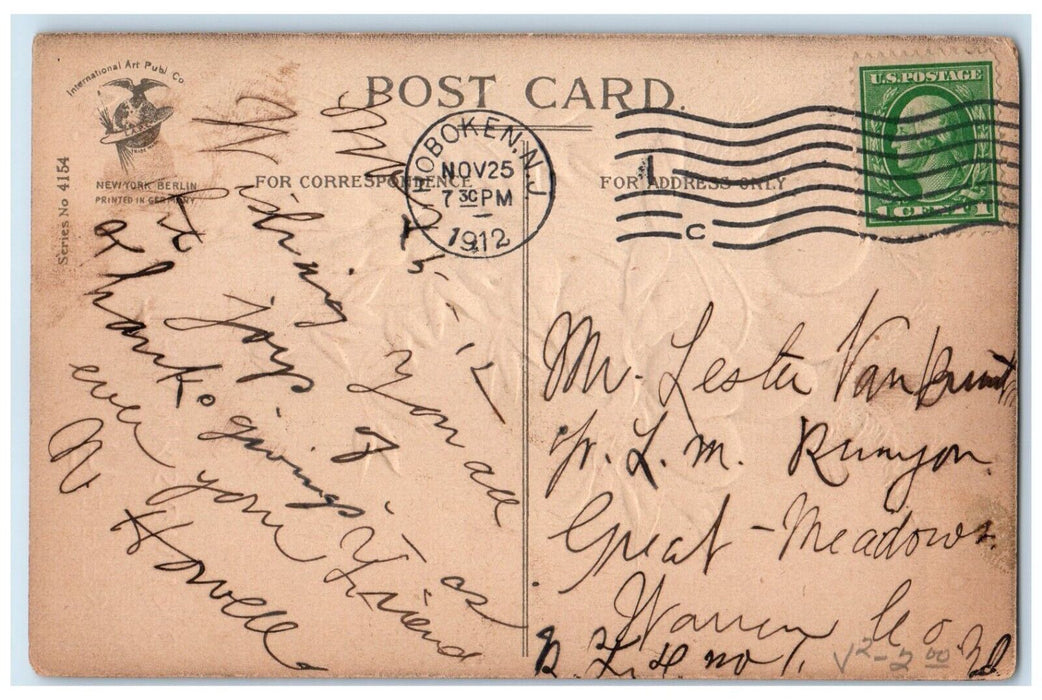 International Art Publ Co
NEW YORK BERLIN
PRINTED IN GERMANY
Series No 4154
POST CARD.
FOR CORRESPONDENCE
FOR ADDRESS ONLY
HOBOKEN, N.J.
NOV 25
7 30 PM
1912
1
C
U.S. POSTAGE
1 CENT 1
Wishing You all
joys of
thanksgiving as
ever your Friend
N Howell
Mr. Lester Van Brunt
L. M. Runyon.
Great - Meadows.
Warren Co.
no 1.
2-2.00